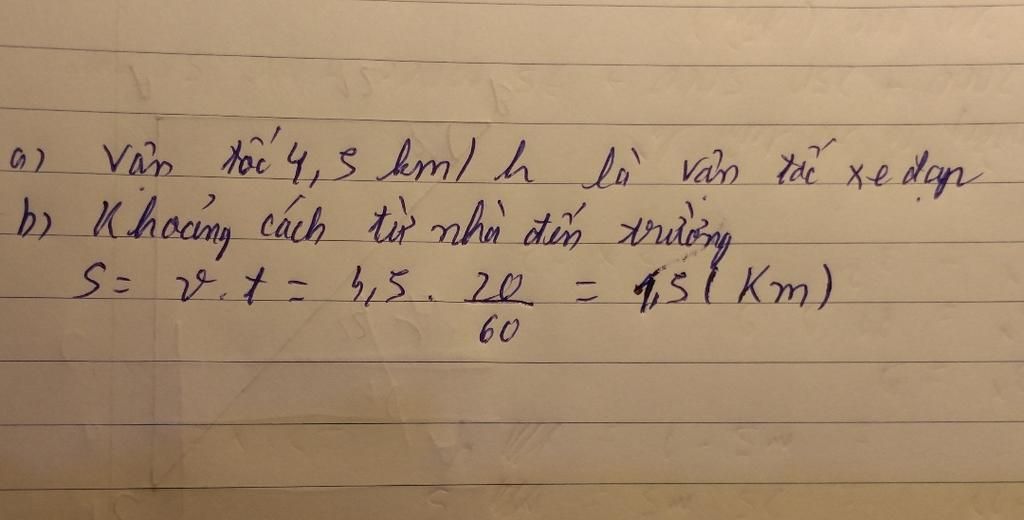 a) Vận tốc 4,5 km/h là vận tốc xe đạp
b) Khoảng cách từ nhà đến trường
S = v.t = 4,5 . \frac{20}{60} = 1,5 (Km)